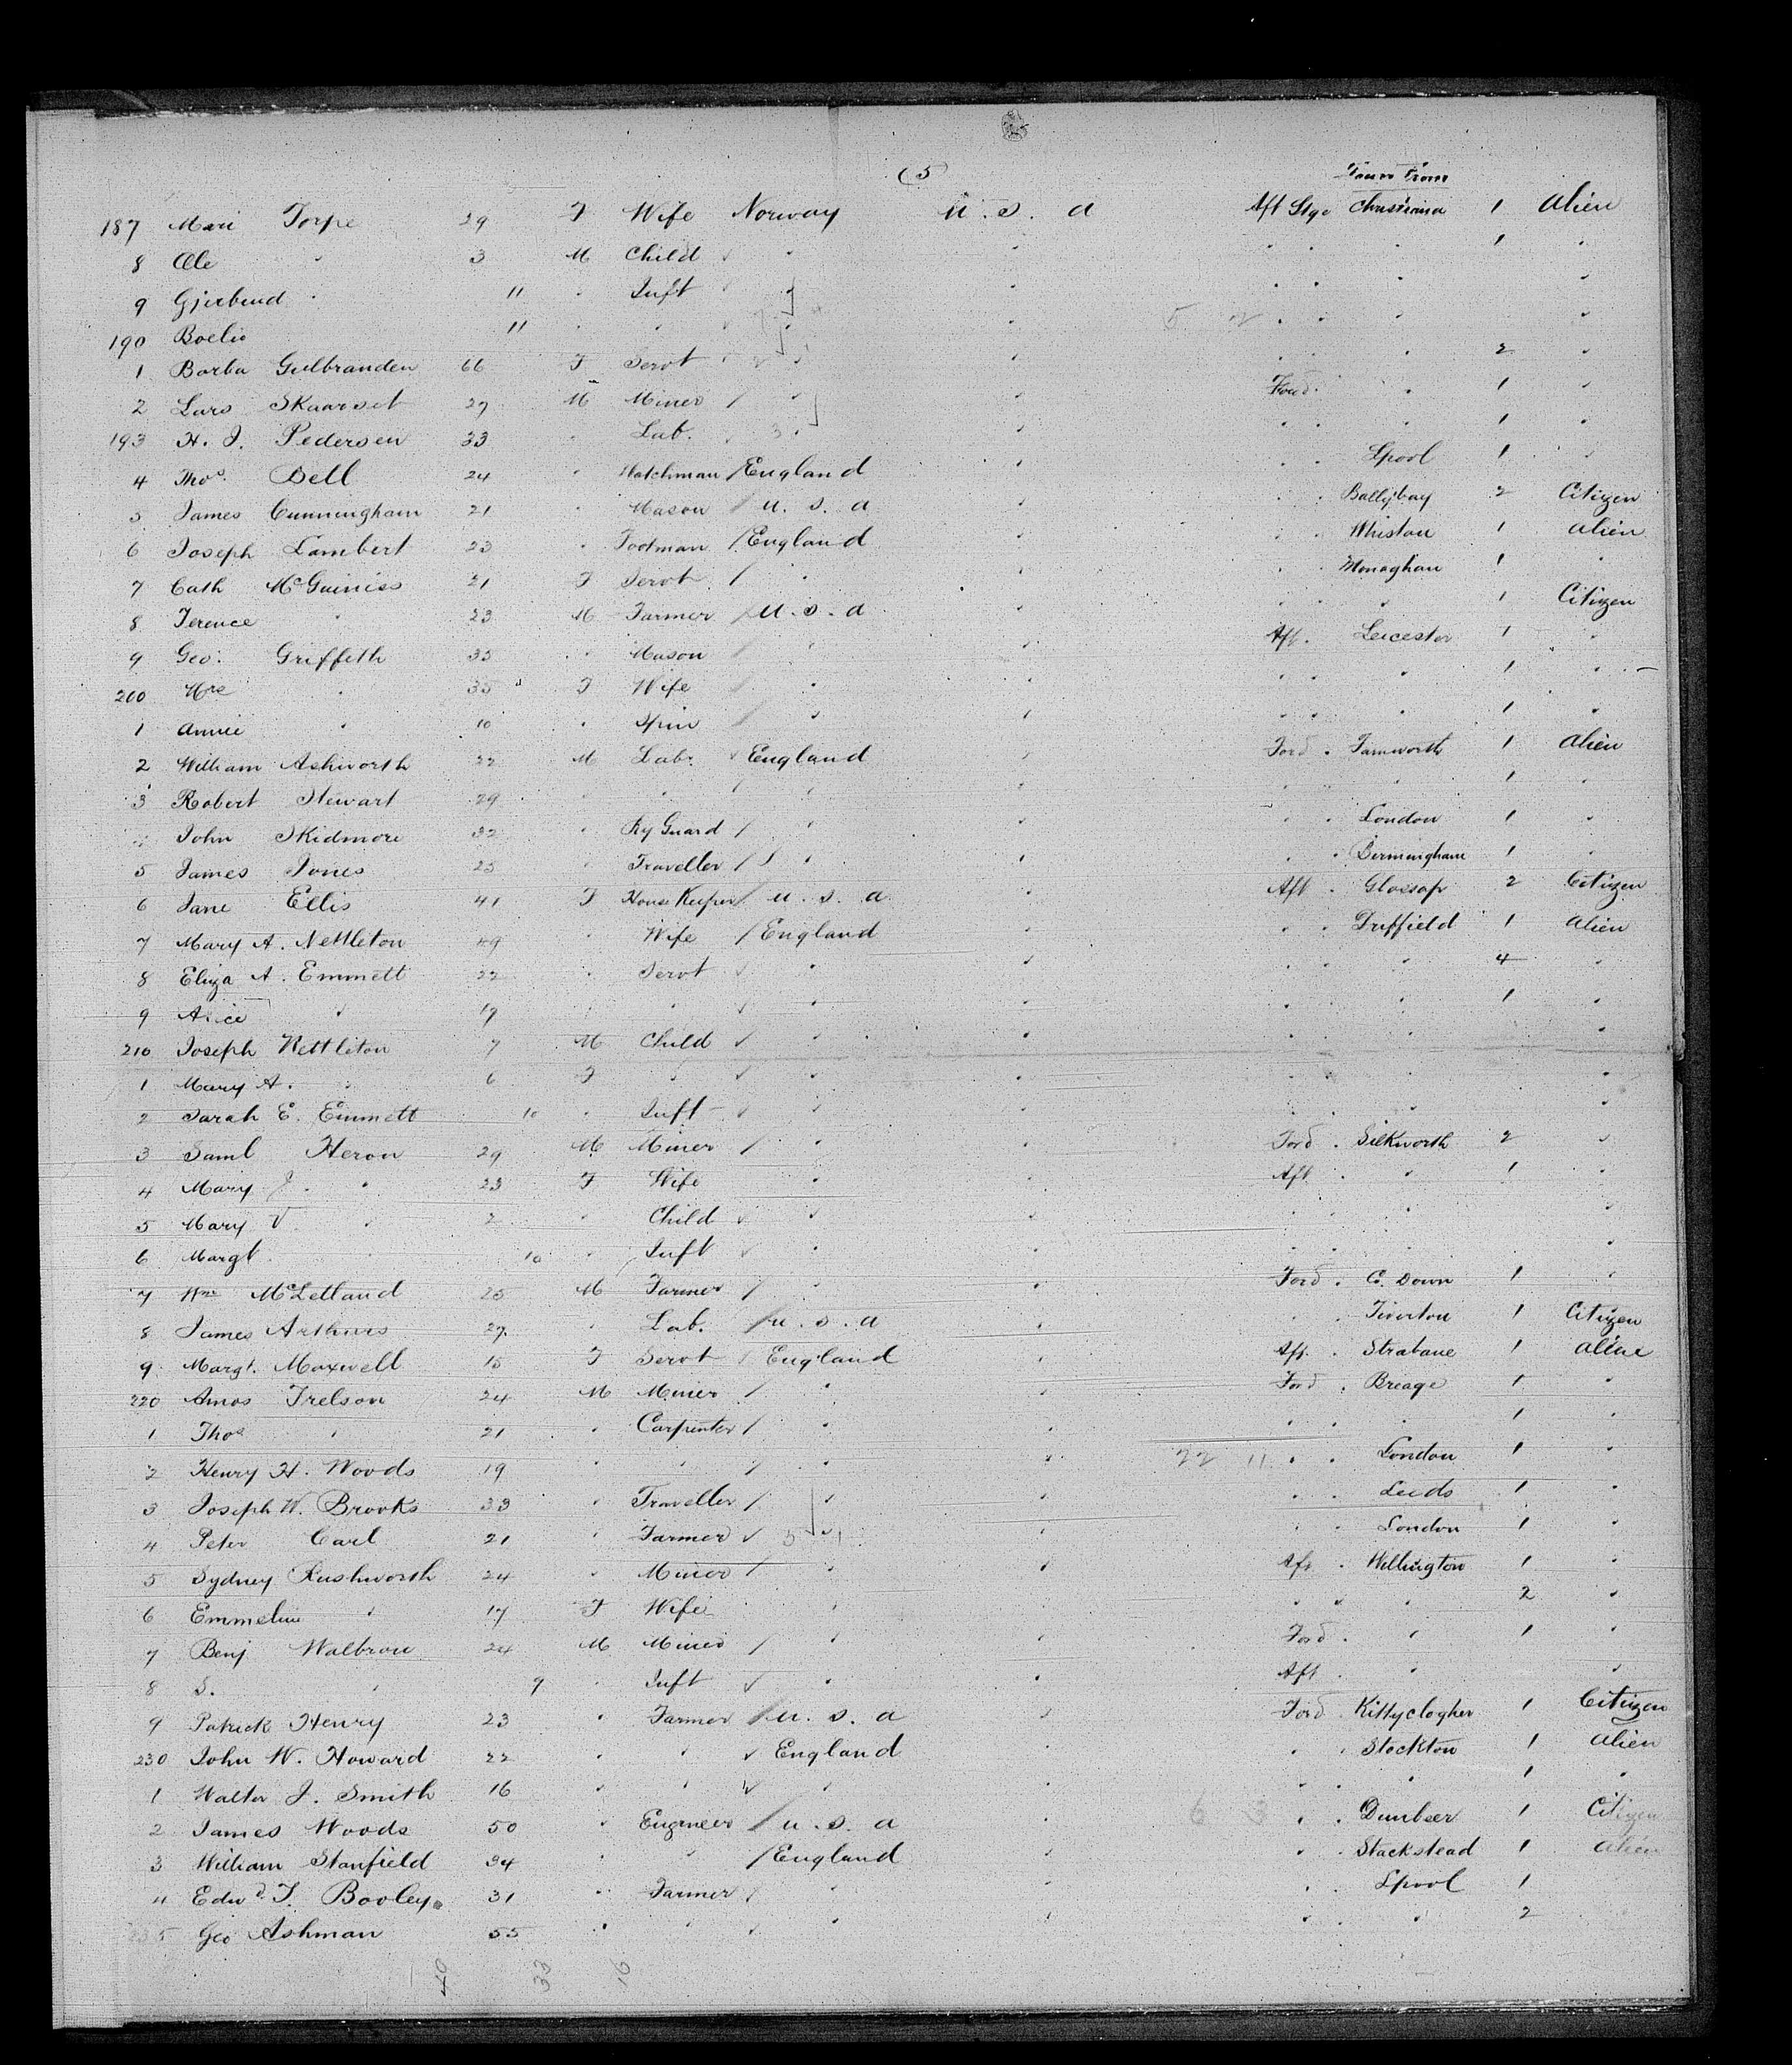 (5)
Town From
187 Mari Torpe 29 F Wife Norway U.S.A Aft Stge Christiania 1 Alien
8 Ole " 3 M Child " " " " " 1 "
9 Gjerbend " 11 " Inft " " " " " "
190 Boelio 11 " " " " " " " "
1 Barba Gulbranden 66 F Servt " " " " " 2 "
2 Lars Skaarset 27 M Miner " " Ford " " 1 "
193 H. J. Pedersen 33 " Lab. " " " " " 1 "
4 Thos. Bell 24 " Watchman England " " " Lpool 1 "
5 James Cunningham 21 " Mason U.S.A " " " Ballybay 2 Citizen
6 Joseph Lambert 23 " Footman England " " " Whiston 1 Alien
7 Cath McGuiniss 21 F Servt " " " " Monaghan 1 "
8 Terence " 23 M Farmer U.S.A " " " " 1 Citizen
9 Geo. Griffeth 35 " Mason " " Aft " Leicester 1 "
200 Mrs " 35 F Wife " " " " " 1 "
1 Annie " 10 " Spin " " " " " 1 "
2 William Ashworth 22 M Lab. England " Ford " Tamworth 1 Alien
3 Robert Stewart 29 " " " " " " " 1 "
4 John Skidmore 32 " Ry Guard " " " " London 1 "
5 James Jones 25 " Traveller " " " " Birmingham 1 "
6 Jane Ellis 41 F House Keeper U.S.A " Aft " Glossop 2 Citizen
7 Mary A. Nettleton 49 " Wife England " " " Driffield 1 Alien
8 Eliza A. Emmett 22 " Servt " " " " " 4 "
9 Alice " 19 " " " " " " " 1 "
210 Joseph Nettleton 7 M Child " " " " " "
1 Mary A. " 6 F " " " " " " "
2 Sarah E. Emmett 10 " Inft " " " " " "
3 Saml Heron 29 M Miner " " Ford " Silkworth 2 "
4 Mary J. " 23 F Wife " " Aft " " 1 "
5 Mary V " 2 " Child " " " " " "
6 Margt. " 10 " Inft " " " " " "
7 Wm McLelland 25 M Farmer " " Ford " Co. Down 1 "
8 James Arthurs 27 " Lab. U.S.A " " " Tiverton 1 Citizen
9 Margt. Maxwell 15 F Servt England " Aft " Strabane 1 Alien
220 Amos Trelson 24 M Miner " " Ford " Breage 1 "
1 Thos " 21 " Carpenter " " " " " 1 "
2 Henry H. Woods 19 " " " " 22 11 " " London 1 "
3 Joseph W. Brooks 33 " Traveller " " " " Leeds 1 "
4 Peter Carl 21 " Farmer " " " " London 1 "
5 Sydney Rushworth 24 " Miner " " Aft " Wellington 1 "
6 Emmeline " 17 F Wife " " " " " 2 "
7 Benj Walbron 24 M Miner " " Ford " " 1 "
8 S. " 9 " Inft " " Aft " " "
9 Patrick Henry 23 " Farmer U.S.A " Ford " Kiltyclogher 1 Citizen
230 John W. Howard 22 " " England " " Stockton 1 Alien
1 Walter J. Smith 16 " " " " " " " 1 "
2 James Woods 50 " Engineer U.S.A " 6 3 " " 1 Citizen
3 William Stanfield 34 " " England " " Stackstead 1 Alien
4 Edwd. T. Booley 31 " Farmer " " " " Lpool 1
235 Geo Ashman 55 " " " " " " " 2
40 33 16